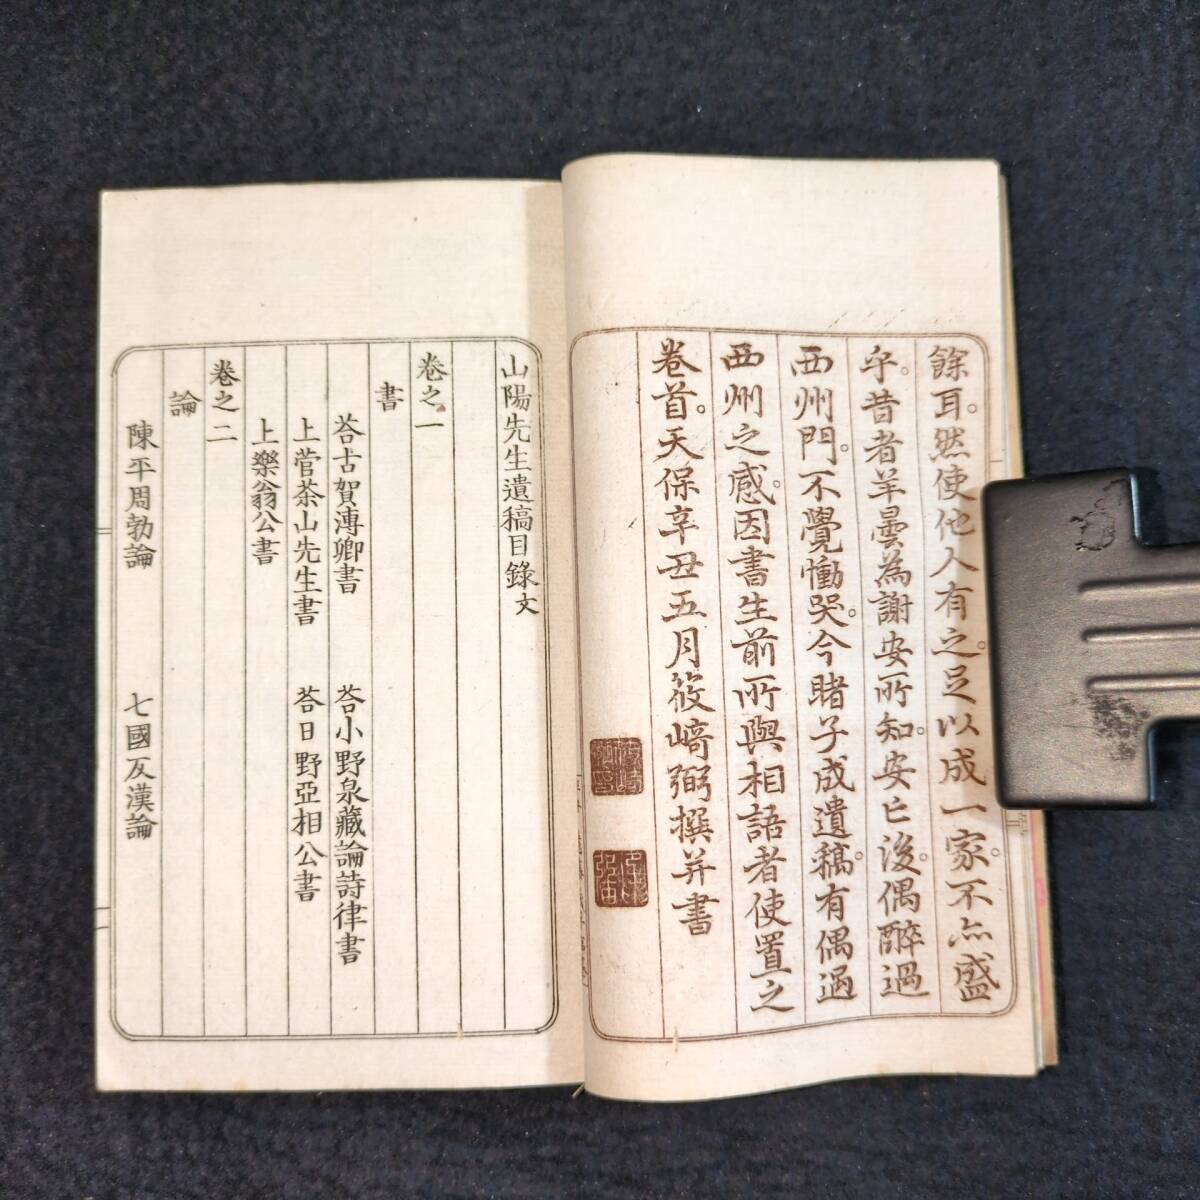 餘耳。然使他人有之。足以成一家。不亦盛
乎。昔者羊曇為謝安所知。安亡後。偶醉過
西州門。不覺慟哭。今睹子成遺稿。有偶過
西州之感。因書生前所與相語者。使置之
卷首。天保辛丑五月筱﨑弼撰并書
山陽先生遺稿目錄文
卷之一
書
答古賀溥卿書 答小野泉藏論詩律書
上菅茶山先生書 答日野亞相公書
上樂翁公書
卷之二
論
陳平周勃論 七國反漢論